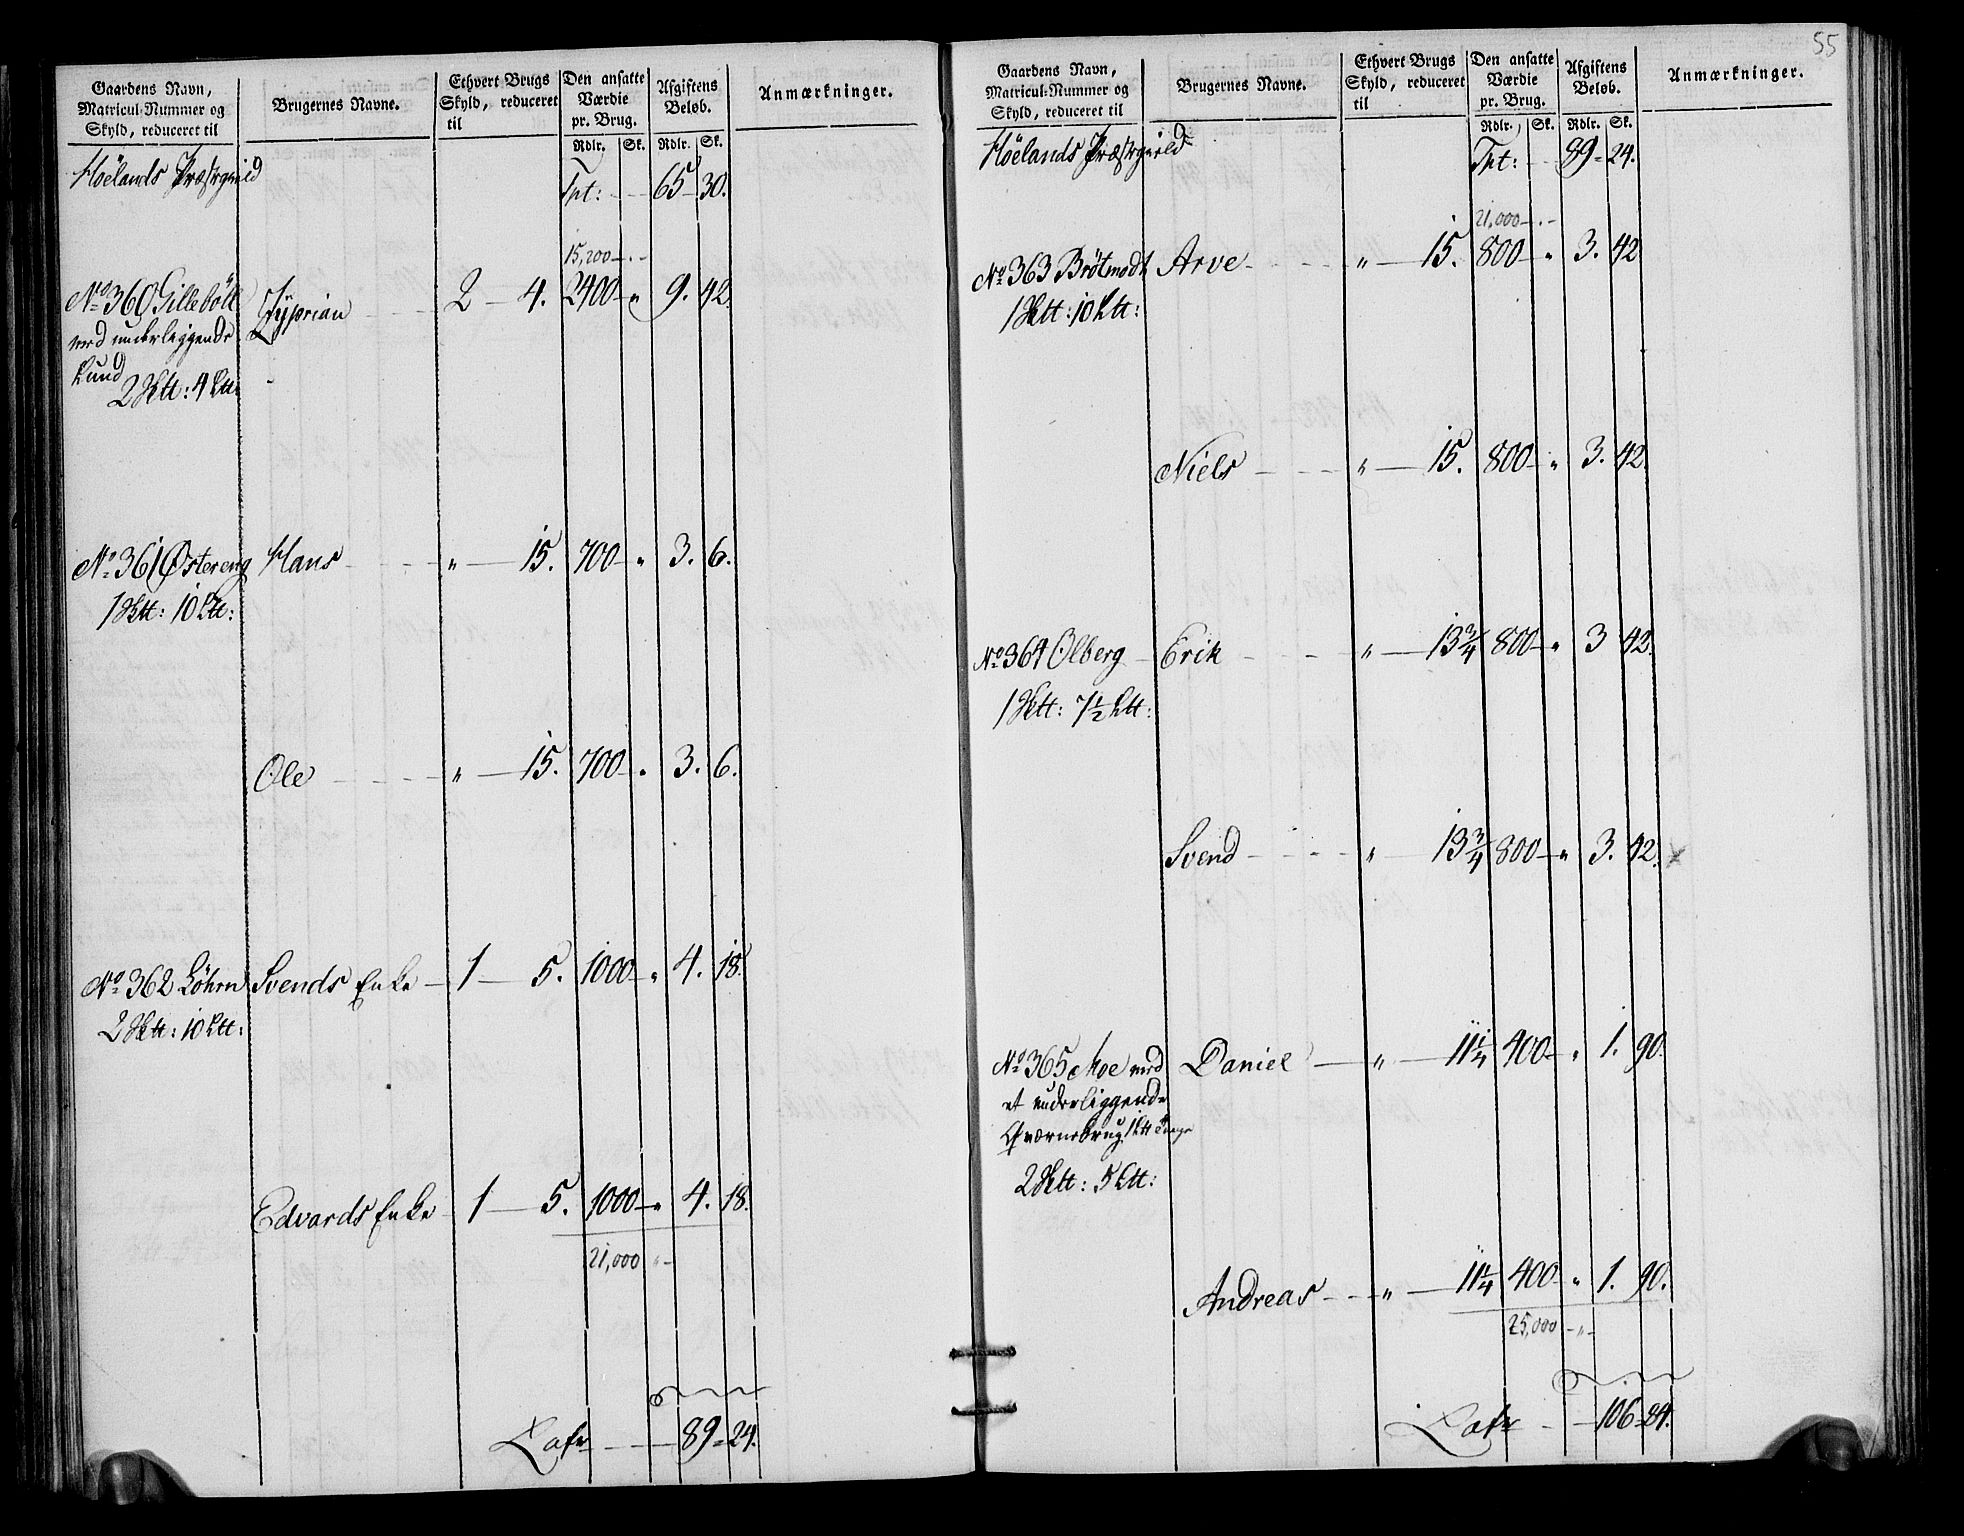 Gaardens Navn, Matricul-Nummer og Skyld, reduceret til | Brugernes Navne. | Ethvert Brugs Skyld, reduceret til | Den ansatte Værdie pr. Brug. | Afgiftens Beløb. | Anmærkninger.
Rdlr. Sk. Rdlr. Sk.
Höelands Præstegield Tpt: 65 30.
15,200
No 360 Gilleböll Zyprian 2 4. 2400 " 9. 42.
med underliggende
Lund
2 Sktt: 4 Ltt:
No 361 Østereng Hans " 15. 700 " 3. 6.
1 Sktt: 10 Ltt:
Ole " 15. 700 " 3. 6.
No 362 Löhrn Svends Enke 1 5. 1000 " 4. 18.
2 Sktt: 10 Ltt:
Edvards Enke 1 5. 1000 " 4. 18.
21,000 "
Latr 89 24.
55
Gaardens Navn, Matricul-Nummer og Skyld, reduceret til | Brugernes Navne. | Ethvert Brugs Skyld, reduceret til | Den ansatte Værdie pr. Brug. | Afgiftens Beløb. | Anmærkninger.
Rdlr. Sk. Rdlr. Sk.
Höelands Præstegield Tpt: 89 24.
21,000
No 363 Brötmodt Arve " 15. 800 " 3. 42
1 Sktt: 10 Ltt:
Niels " 15. 800 " 3. 42.
No 364 Olberg Erik " 13 3/4 800 " 3 42.
1 Sktt: 7 1/2 Ltt:
Svend " 13 3/4 800 " 3. 42.
No 365 Moe med Daniel " 11 1/4 400 " 1. 90.
et underliggende
Qværnebrug 1 Ltt
2 Sktt: 5 Ltt:
Andreas " 11 1/4 400 " 1. 90.
25,000 "
Latr 106 24.